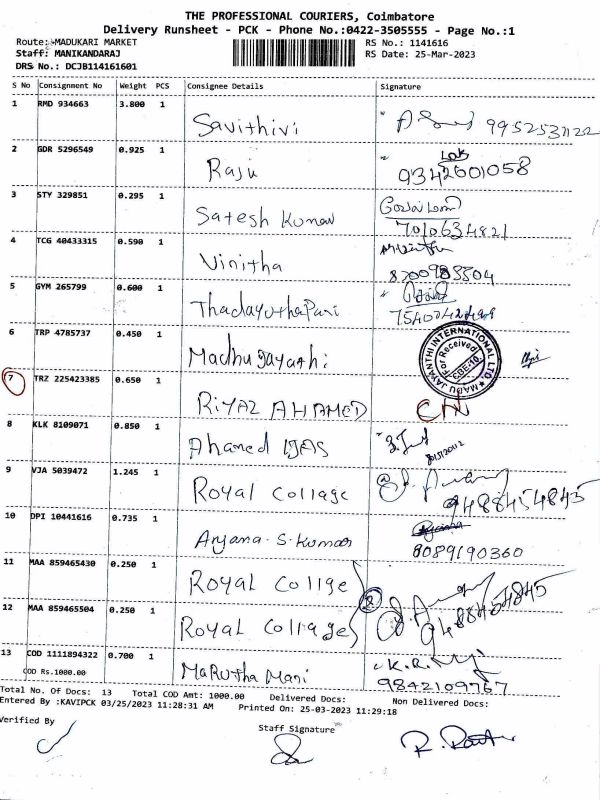 THE PROFESSIONAL COURIERS, Coimbatore
Delivery Runsheet - PCK - Phone No.:0422-3505555 - Page No.:1
Route: MADUKARI MARKET RS No.: 1141616
Staff: MANIKANDARAJ RS Date: 25-Mar-2023
DRS No.: DCJB114161601
S No Consignment No Weight PCS Consignee Details Signature
1 RMD 934663 3.800 1
Savithivi
2 GDR 5296549 0.925 1
Raju 9342601058
3 STY 329851 0.295 1
Satesh Kumar 7010634821
4 TCG 40433315 0.590 1
Vinitha 8700983504
5 GYM 265799 0.600 1
ThadayuthaPani
6 TRP 4785737 0.450 1
Madhu Jayathi
MADU JAYANTHI INTERNATIONAL LTD.
For Received
CBE-10
7 TRZ 225423385 0.650 1
RIYAZ AHAMED
8 KLK 8109071 0.850 1
Ahamed IJAS
9 VJA 5039472 1.245 1
Royal Collage 9488454845
10 DPI 10441616 0.735 1
Anjana-S-Kumar 8089190360
11 MAA 859465430 0.250 1
Royal Collge
12 MAA 859465504 0.250 1
Royal Collage 9488454845
13 COD 1111894322 0.700 1
COD Rs.1000.00 Marutha Mani 9842109767
Total No. Of Docs: 13 Total COD Amt: 1000.00 Delivered Docs: Non Delivered Docs:
Entered By :KAVIPCK 03/25/2023 11:28:31 AM Printed On: 25-03-2023 11:29:18
Verified By Staff Signature